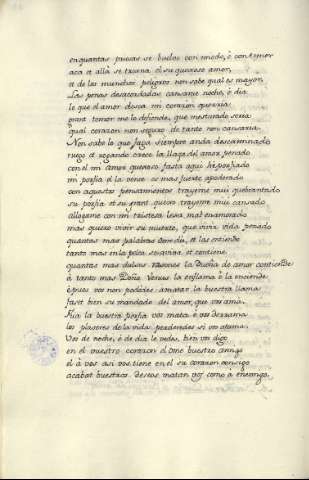 en quantas pueras se buelas con miedo, è con temor
acà et allà se trexna el su quexoso amor,
et de los muchos peligros non sabe qual es mayor.
Las penas desacordadas cansame noche, è dia
lo que el amor desea mi corazon querria
grant temor me lo defiende, que mesturado seria
qual corazon non seguro de tanto non cansaria.
Non sabe lo que faga siempre anda descaminado
ruega et rogando crece la llaga del amor penado
con el mi amor quexoso fasta aqui he porfiado
mi porfia el la vence es mas fuerte apoderado
con aquestos pensamientos trayeme muy quebrantado
su porfia et su grant quexa trayeme muy cansado
allegame con mi tristesa lexa mal enamorado
mas quiero vivir su muerte, que vivir vida penado
quantas mas palabras desides, et las entiende
tanto mas en la pelea se avivas et contiende
quantas mas dulces rasones la Dueña de amor contiende
à tanto mas Doña Venus la enflama è la enciende
è pues vos non podedes amatar la buestra llama
fasit bien su mandado del amor, que vos ama.
Fija la buestra porfia vos mata è vos derrama
los plaseres de la vida perdendes si vos atama.
Vos de noche, è de dia lo vedes, bien vos digo
en el vuestro corazon al ome buestro amigo
el à vos asi vos tiene en el su corazon consigo
acabat buestros deseos matan vos como à enemigo.